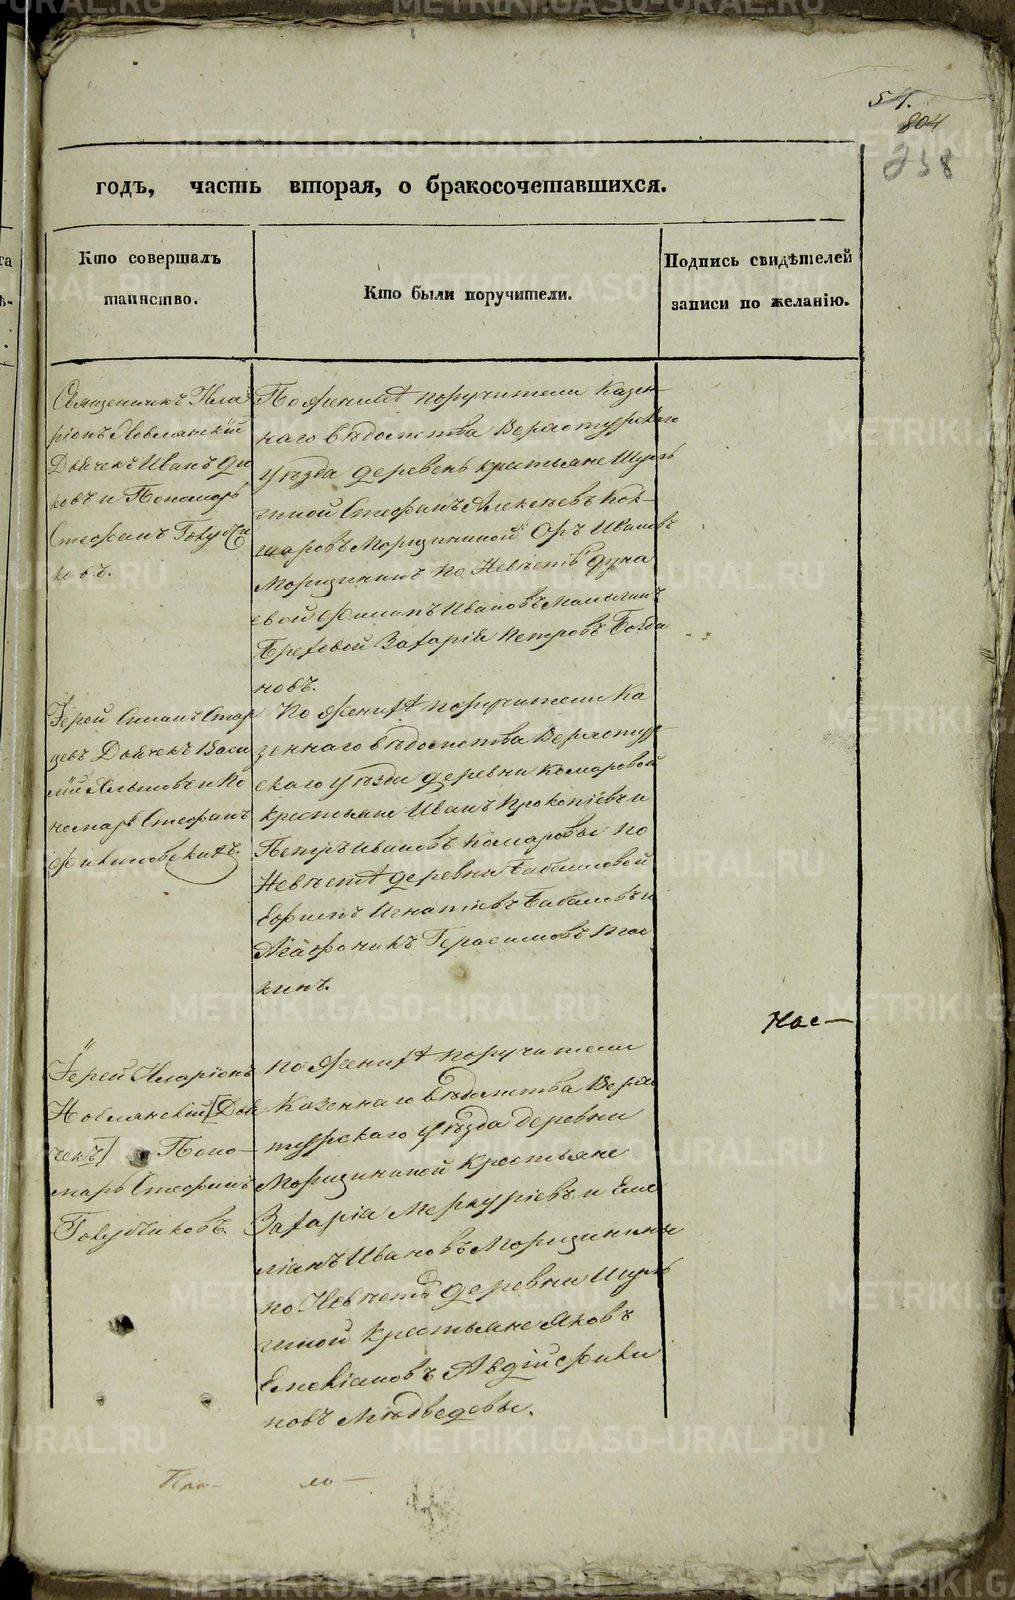 54.
804
238
годъ, часть вторая, о бракосочетавшихся.
Кто совершалъ
таинство.
Кто были поручители.
Подпись свидѣтелей
записи по желанію.
Священникъ Ила
ріонъ Новлянскій
Дьячекъ Иванъ
ковъ и Пономарь
Стефанъ Голубчи
ковъ.
По женихѣ поручители Казен
наго вѣдомства Верхотурскаго
уѣзда деревень крестьяне
Стефанъ Алексѣевъ Кок-
шаровъ Морщининой Иванъ
Морщининъ по Невѣстѣ Дуна
евой Филипъ Ивановъ
Захарій Петровъ Богда
новъ.
Іерей Стар
цевъ Дьячекъ Васи
лій и По
номарь Стефанъ
По женихѣ поручители Ка
зеннаго вѣдомства Верхотур
скаго уѣзда деревни Комаровой
крестьяне Иванъ Прокопіевъ и
Петръ Ивановъ Комаровы по
Невѣстѣ деревни Бабиновой
Ефимъ Игнатіевъ Бабиновъ и
Агафоникъ Герасимовъ
кинъ.
Нас—
Іерей Иларіонъ
Новлянскій [Дья
чекъ] Поно-
марь Стефанъ
Голубчиковъ.
по женихѣ поручители
Казеннаго вѣдомства Верхо
турскаго уѣзда деревни
Морщининой крестьяне
Захарій Меркуріевъ и Еме
ліанъ Ивановъ Морщинины
по Невѣстѣ деревни
крестьяне Яковъ
Емеліановъ Авдій Фили
повъ Медвѣдевы.
METRIKI.GASO-URAL.RU